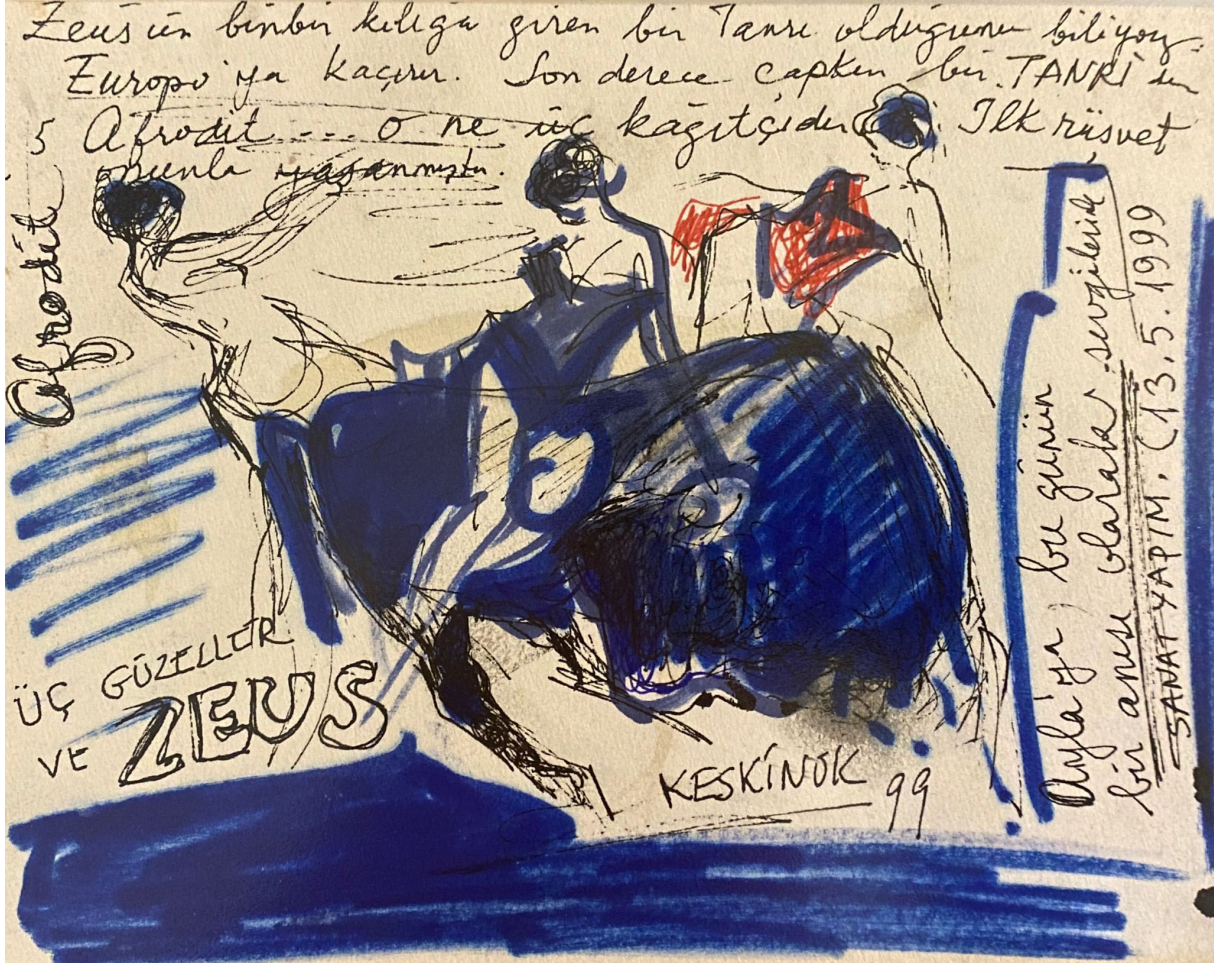 Zeus'ün binbir kılığa giren bir Tanrı olduğunu biliyoz.
Europo'ya kaçırır. Son derece çapkın bir TANRI
5 Afrodit ... o ne üç kâğıtçıdır İlk rüşvet
onunla yaşanmıştır.
Afrodit
ÜÇ GÜZELLER
VE ZEUS
KESKİNOK 99
Ayla'ya bu günün
bir anısı olarak sevgilerimle
SANAT YAPIM. (13.5.1999